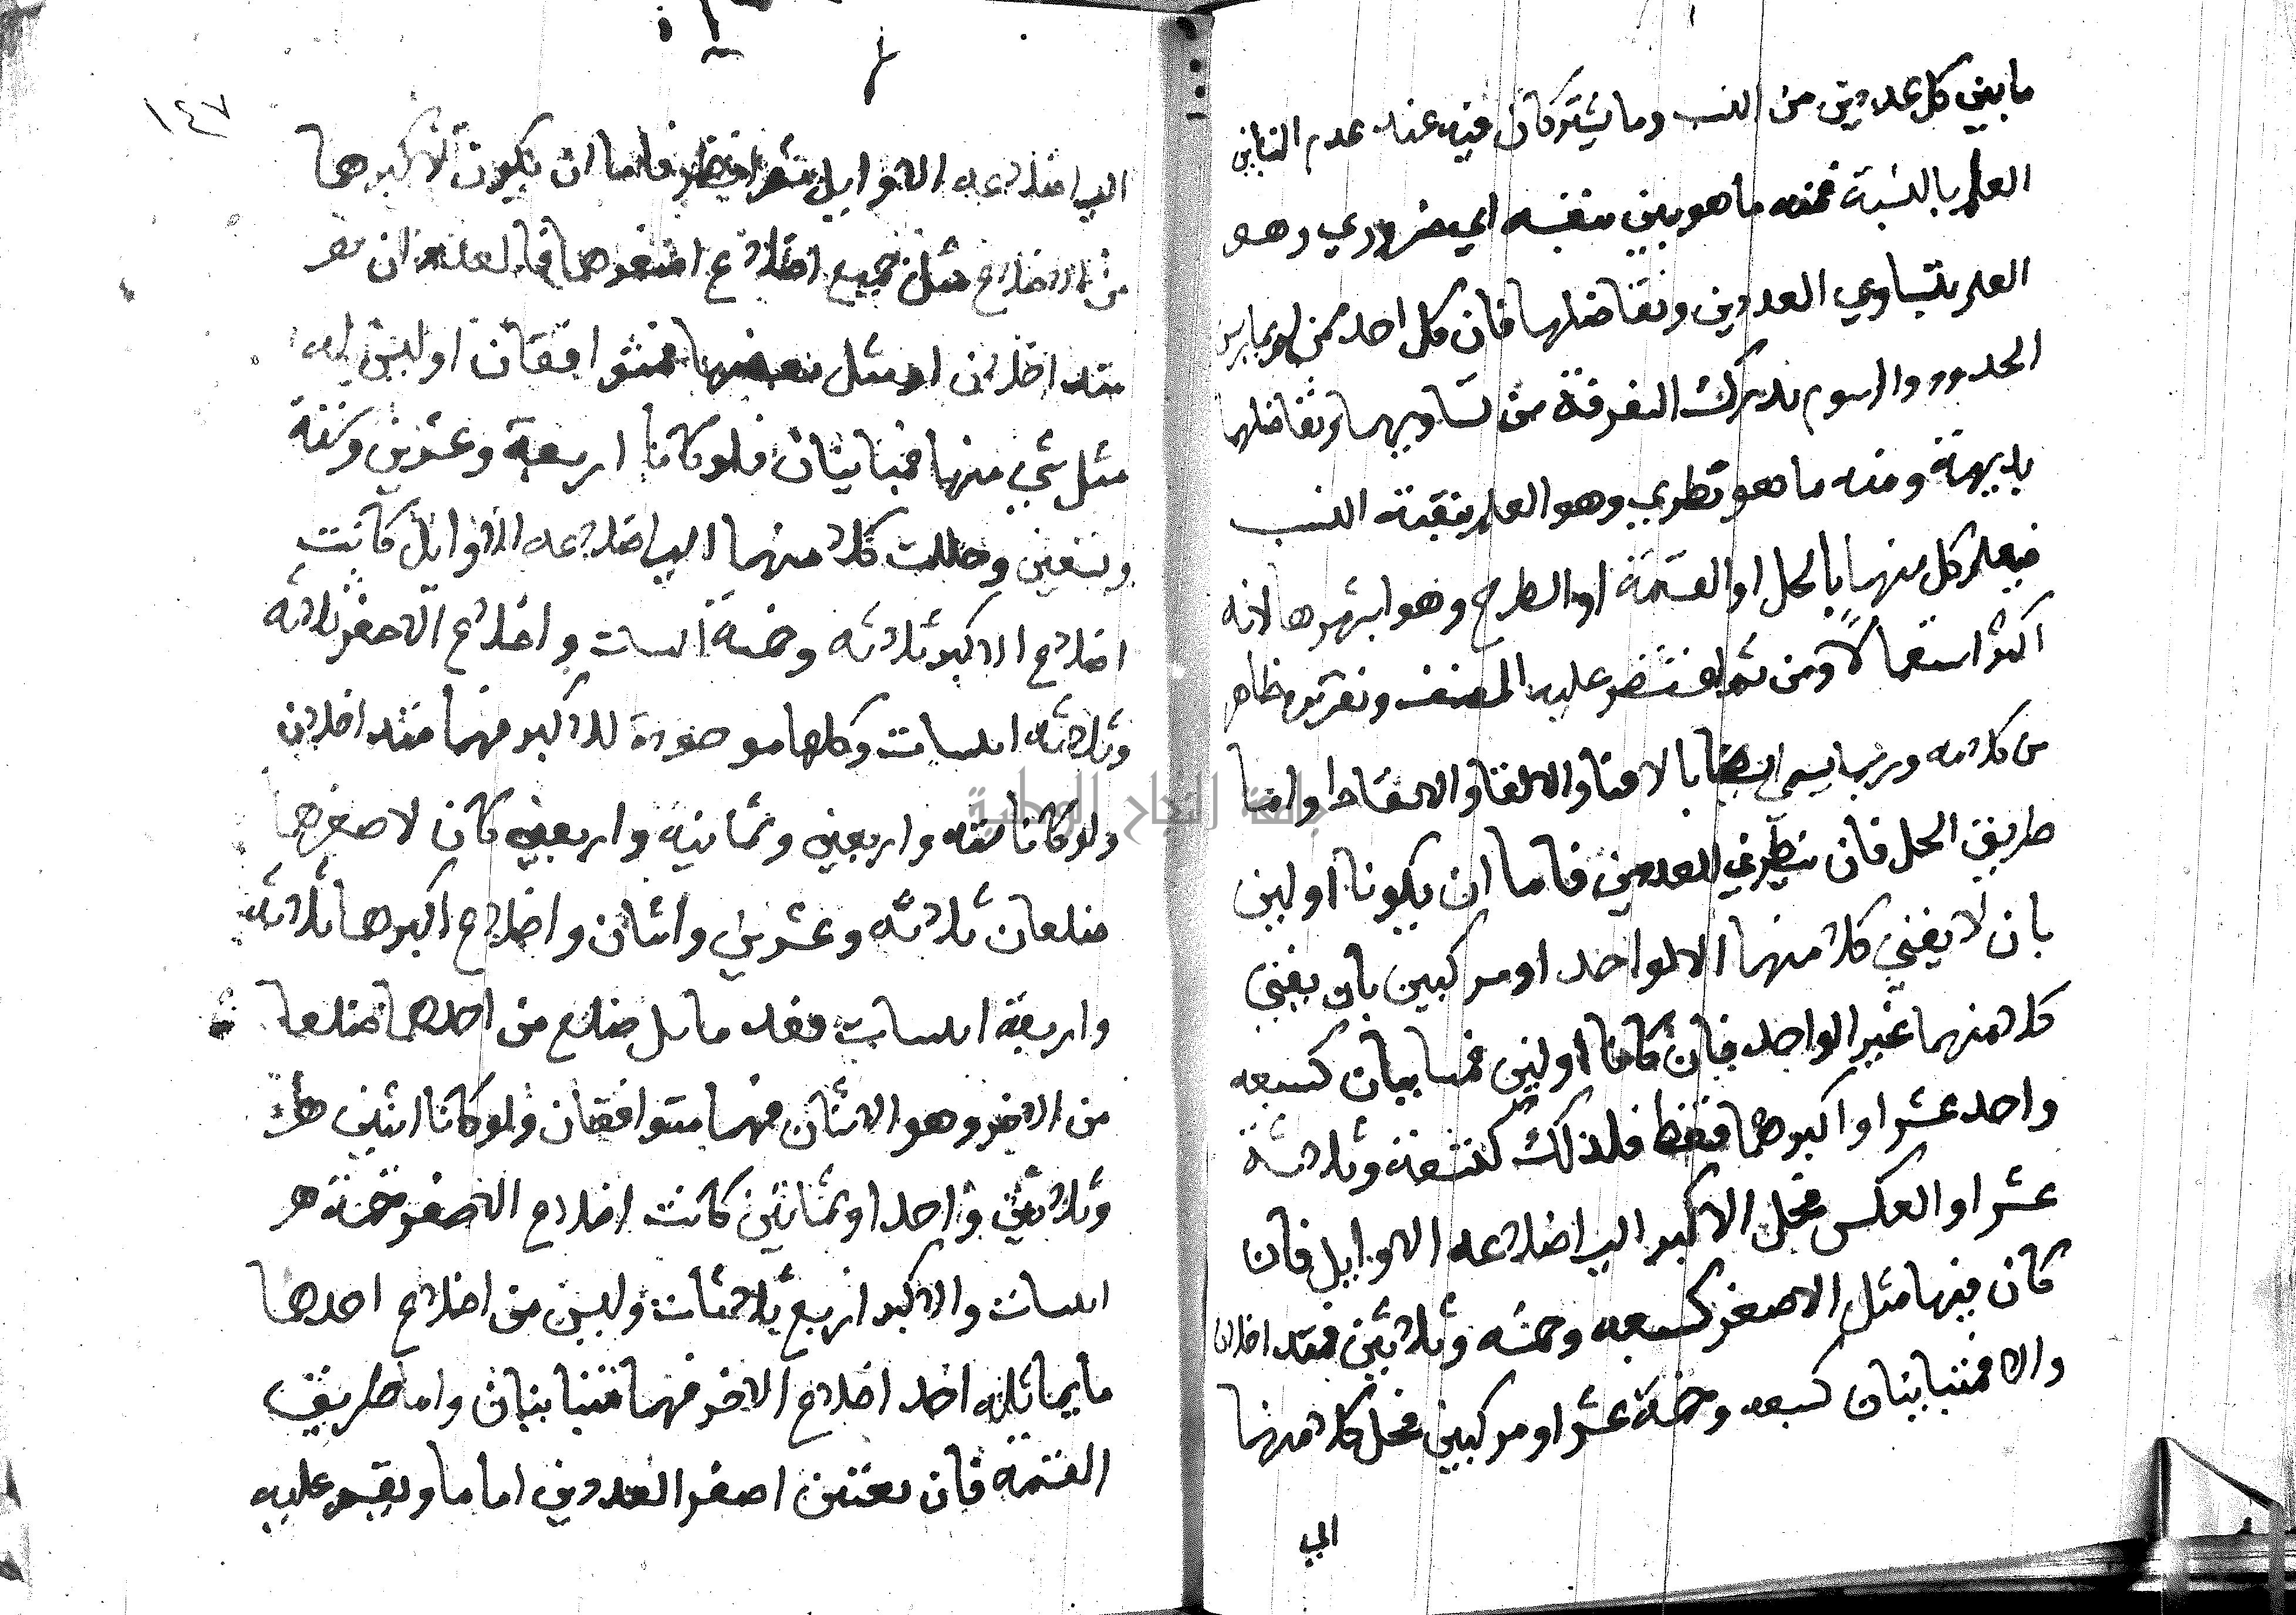 ما بين كل عددين من النسب وما يشتركان فيه عند عدم التباين
العلم بالنسبة فمنه ما هو بين بنفسه اي ضروري وهو
العلم بتساوي العددين وتفاضلهما فان كل احد ممن لم يمارس
الحدود والرسوم يدرك التفرقة من تساويهما وتفاضلهما
بديهة ومنه ما هو نظري وهو العلم ببقية النسب
فيعلم كل منها بالحل او القسمة او الطرح وهو اشهرها لانه
اكثر استعمالا ومن ثم اقتصر عليه المصنف وتقريره ظاهر
من كلامه وربما يسمي ايضا بالافنا والالقا والاسقاط واما
طريق الحل فان ينظر في العددين فاما ان يكونا اولين
بان لا يفني كلا منهما الا الواحد او مركبين بان يفني
كلا منهما غير الواحد فان كانا اولين فمتباينان كسبعه
واحد عشر او اكبرهما فقط فلذلك كتسعة وثلاثة
عشر او العكس فحل الاكبر الي اضلاعه الاوايل فان
كان فيها مثل الاصغر كسبعه وخمسه وثلاثين فمتداخلان
والا فمتباينان كسبعه وخمسة عشر او مركبين فحل كلا منهما
الي
١٤٧
الي اضلاعه الاوايل ثم انظر فاما ان يكون لاكبرهما
من الاضلاع مثل جميع اضلاع اصغرهما فالعددان
متداخلان او مثل بعضها فمتوافقان او ليس له
مثل شي منها فمتباينان فلو كانا اربعة وعشرين وستة
وتسعين وحللت كلا منهما الي اضلاعه الاوايل كانت
اضلاع الاكبر ثلاثه وخمسة اثنينات واضلاع الاصغر ثلاثه
وثلاثه اثنينات وكلها موجودة للاكبر فهما متداخلان
ولو كانا سته واربعين وثمانيه واربعين كان لاصغرهما
ضلعان ثلاثه وعشرين واثنان واضلاع اكبرهما ثلاثه
واربعة اثنينات فقد ماثل ضلع من احدهما ضلعا
من الاخر وهو الاثنان فهما متوافقان ولو كانا اثنين
وثلاثين واحدا وثمانين كانت اضلاع الاصغر خمسة
اثنينات والاكبر اربع ثلاثات وليس من اضلاع احدهما
ما يماثله احد اضلاع الاخر فهما متباينان واما طريق
القسمة فان اصغر العددين اماما ويقسم عليه